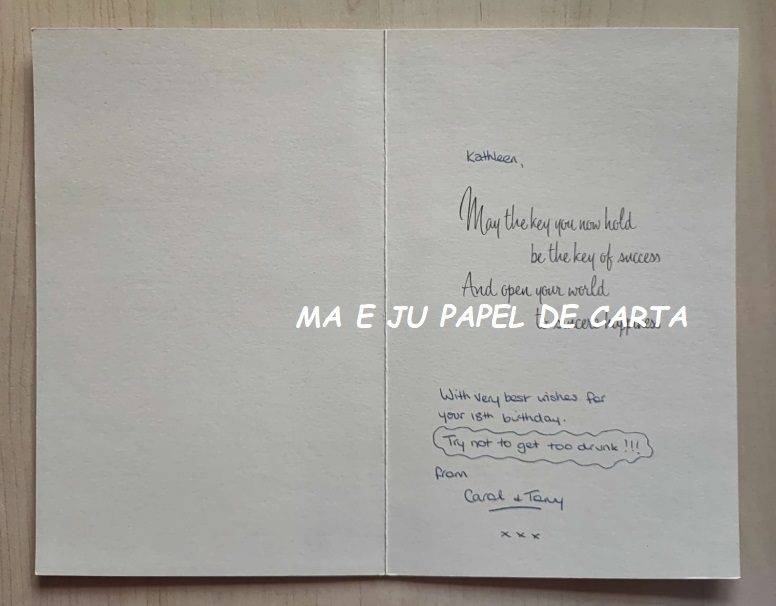 Kathleen,
May the key you now hold
be the key of success
And open your world
MA E JU PAPEL DE CARTA
to sincere happiness
With very best wishes for
your 18th birthday.
Try not to get too drunk!!!
from
Carol & Tony
x x x